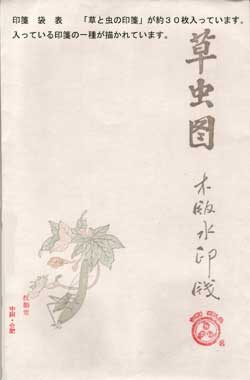 印箋　袋　表　　「草と虫の印箋」が約３０枚入っています。
入っている印箋の一種が描かれています。
草虫图
木版水印戋
中国·合肥